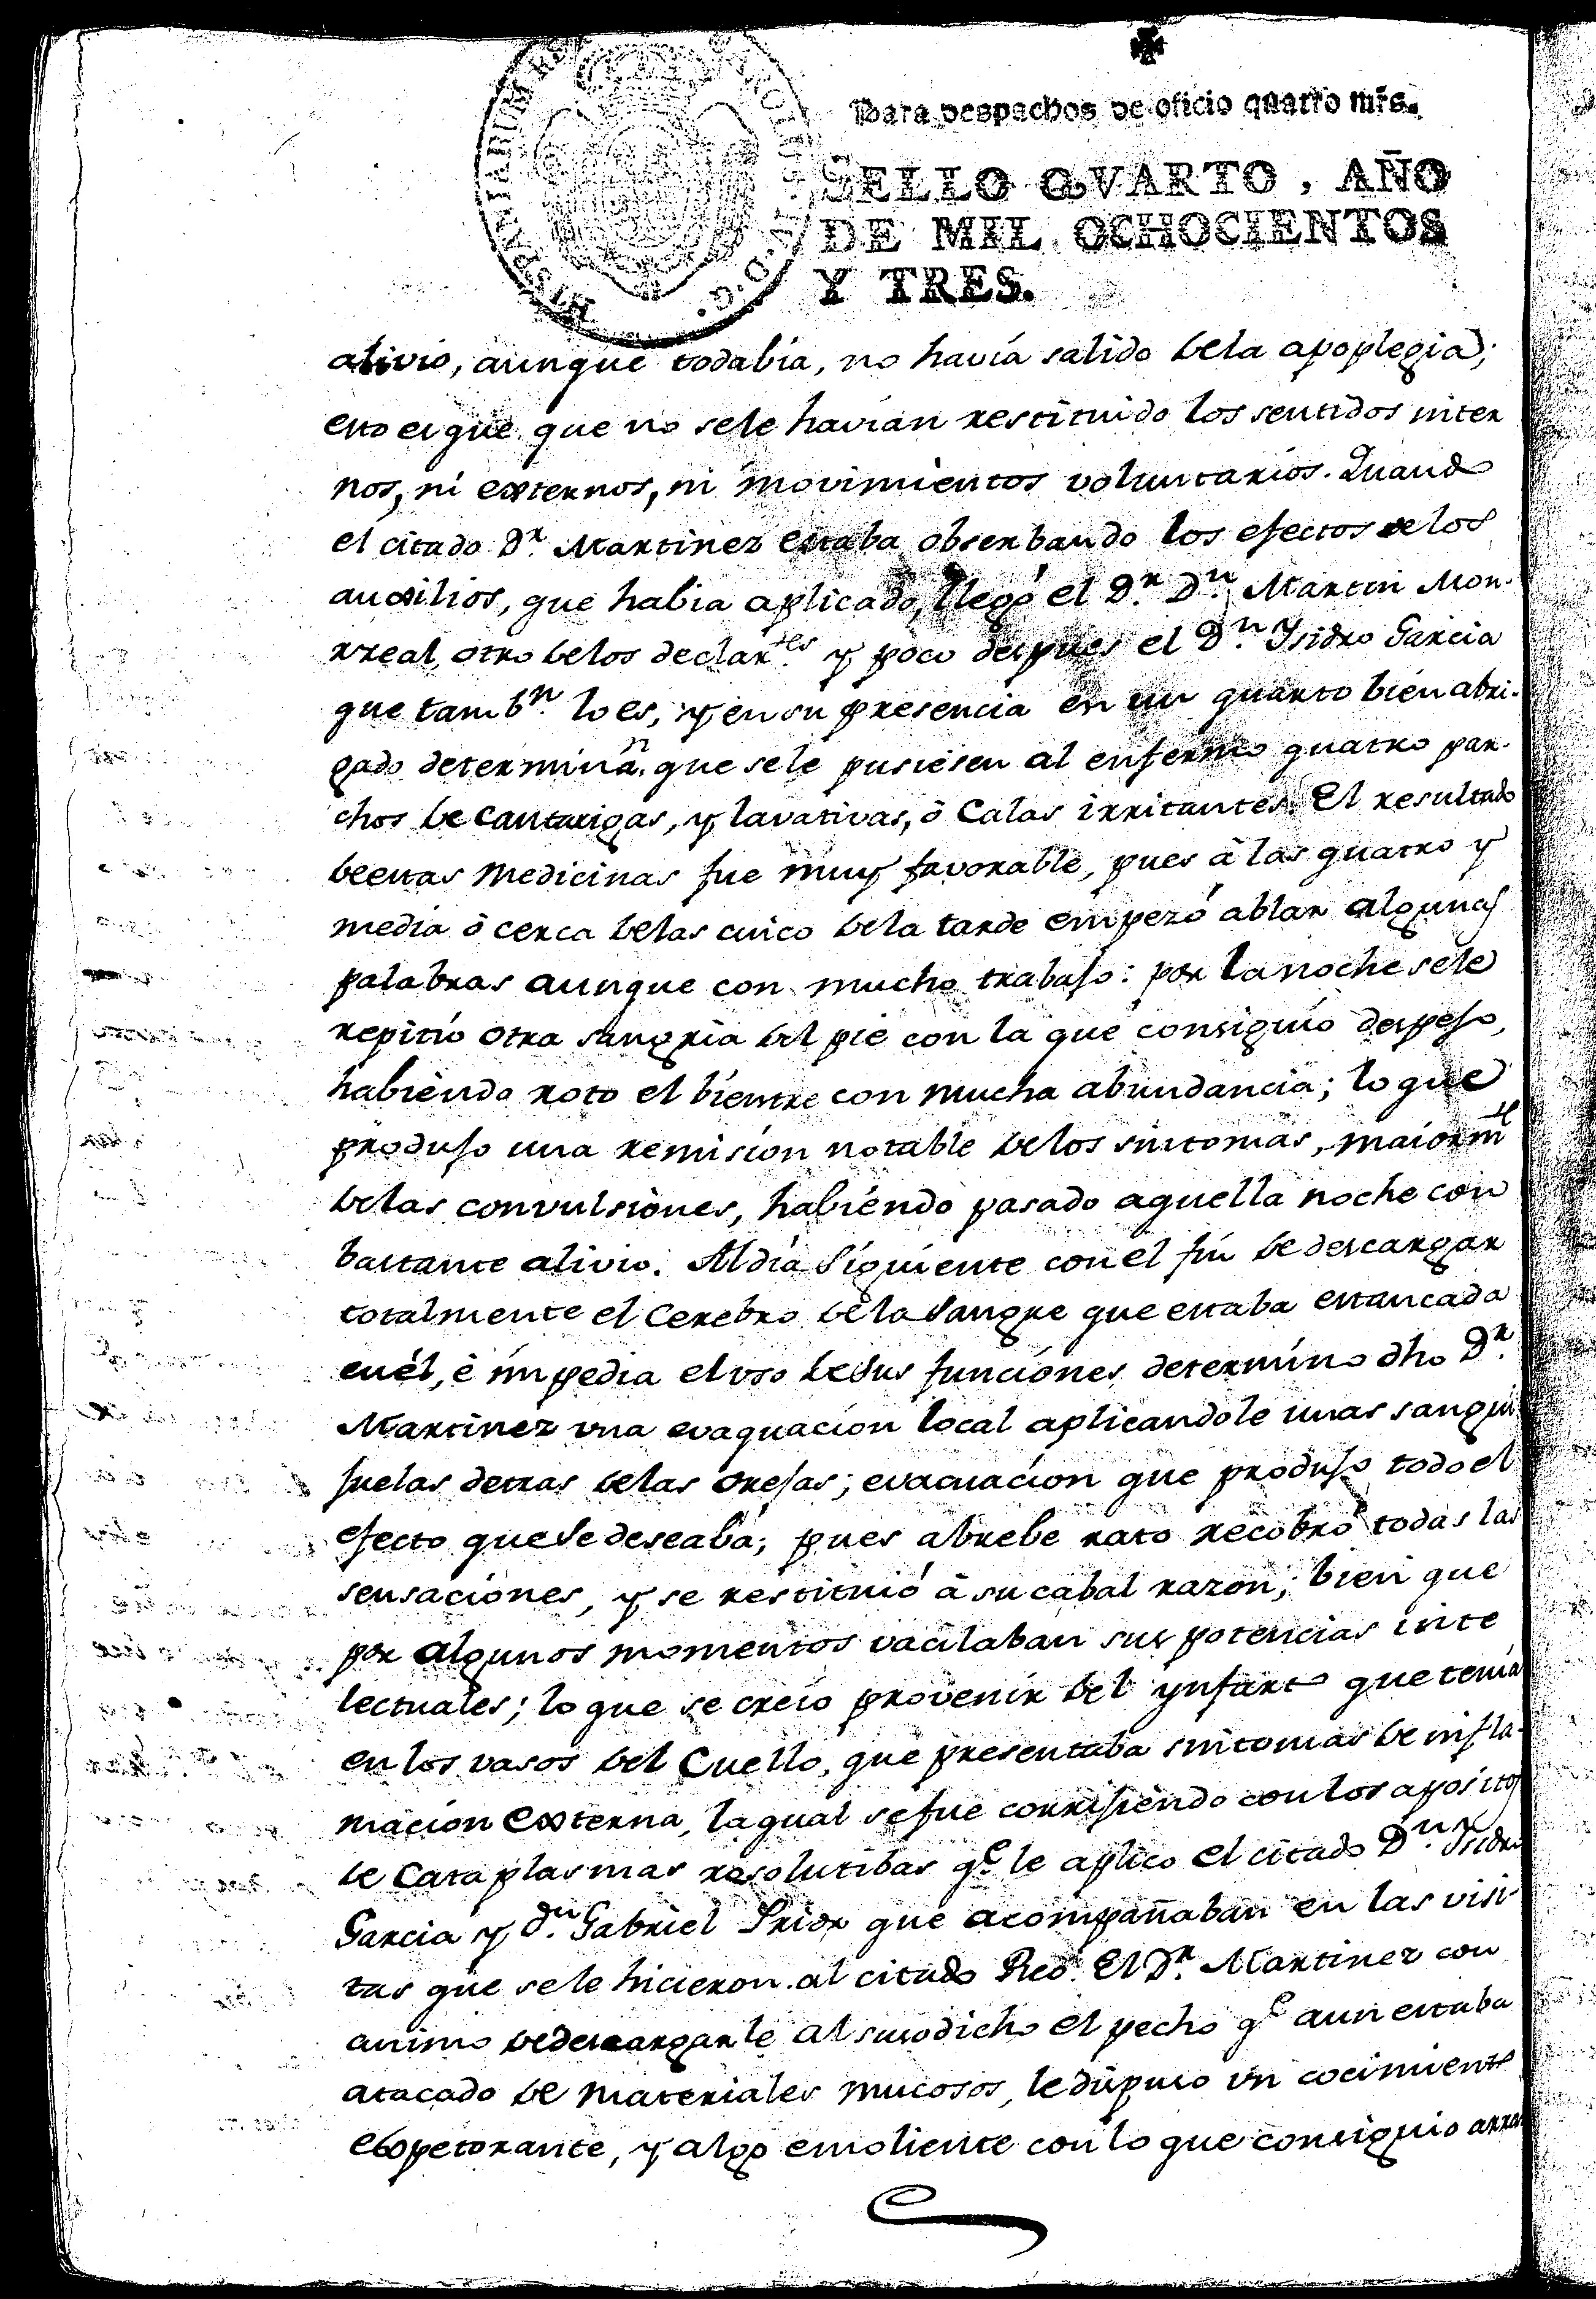 Para despachos de oficio quatro mrs.
SELLO QVARTO, AÑO
DE MIL OCHOCIENTOS
Y TRES.
alivio, aunque todabia, no havía salido dela apoplegia;
esto es que que no sele havian restituido los sentidos inter
nos, ni externos, ni movimientos voluntarios. Quando
el citado Dr. Martinez estaba obserbando los efectos de los
auxilios, que habia aplicado, llegó el Dr. Dn. Martin Mon-
rreal, otro delos declartes. y poco despues el Dn. Ysidro Garcia
que tambn. lo es, y en su presencia en un quarto bien abri-
gado determinan. que sele pusiesen al enfermo quatro par-
chos de cantarigas, y lavativas, ó Calas irritantes. El resultado
deestas medicinas fue muy favorable, pues á las quatro y
media ó cerca delas cinco dela tarde empezó ablar algunas
palabras aunque con mucho trabajo: por la noche sele
repitio otra sangria del pie con la que consiguio despejo,
habiendo roto el bientre con mucha abundancia; lo que
produjo una remision notable delos sintomas, maiormte
delas convulsiones, habiendo pasado aquella noche con
bastante alivio. Al dia siguiente con el fin de descargar
totalmente el Cerebro dela sangre que estaba estancada
en él, é impedia el vso desus funciones determino dho Dr.
Martinez vna evaquacion local aplicandole unas sangui
juelas detras delas orejas; evacuacion que produjo todo el
efecto que se deseaba; pues abrebe rato recobró todas las
sensaciones, y se restituió á su cabal razon; bien que
por algunos momentos vacilaban sus potencias inte
lectuales; lo que se creio provenir del ynfarto que tenia
en los vasos del Cuello, que presentaba sintomas de infla-
macion externa, la qual se fue corrijiendo con los apositos
de Cataplasmas resolutibas qe. le aplico el citado Dn. Ysidro
Garcia y dn. Gabriel Prior que acompañaban en las visi-
tas que sele hicieron al citado Reo. El Dr. Martinez con
animo dedescargarle al susodicho el pecho qe aun estaba
atacado de materiales mucosos, le dispuso vn cocimiento
expetorante, y algo emoliente con lo que consiguio arra